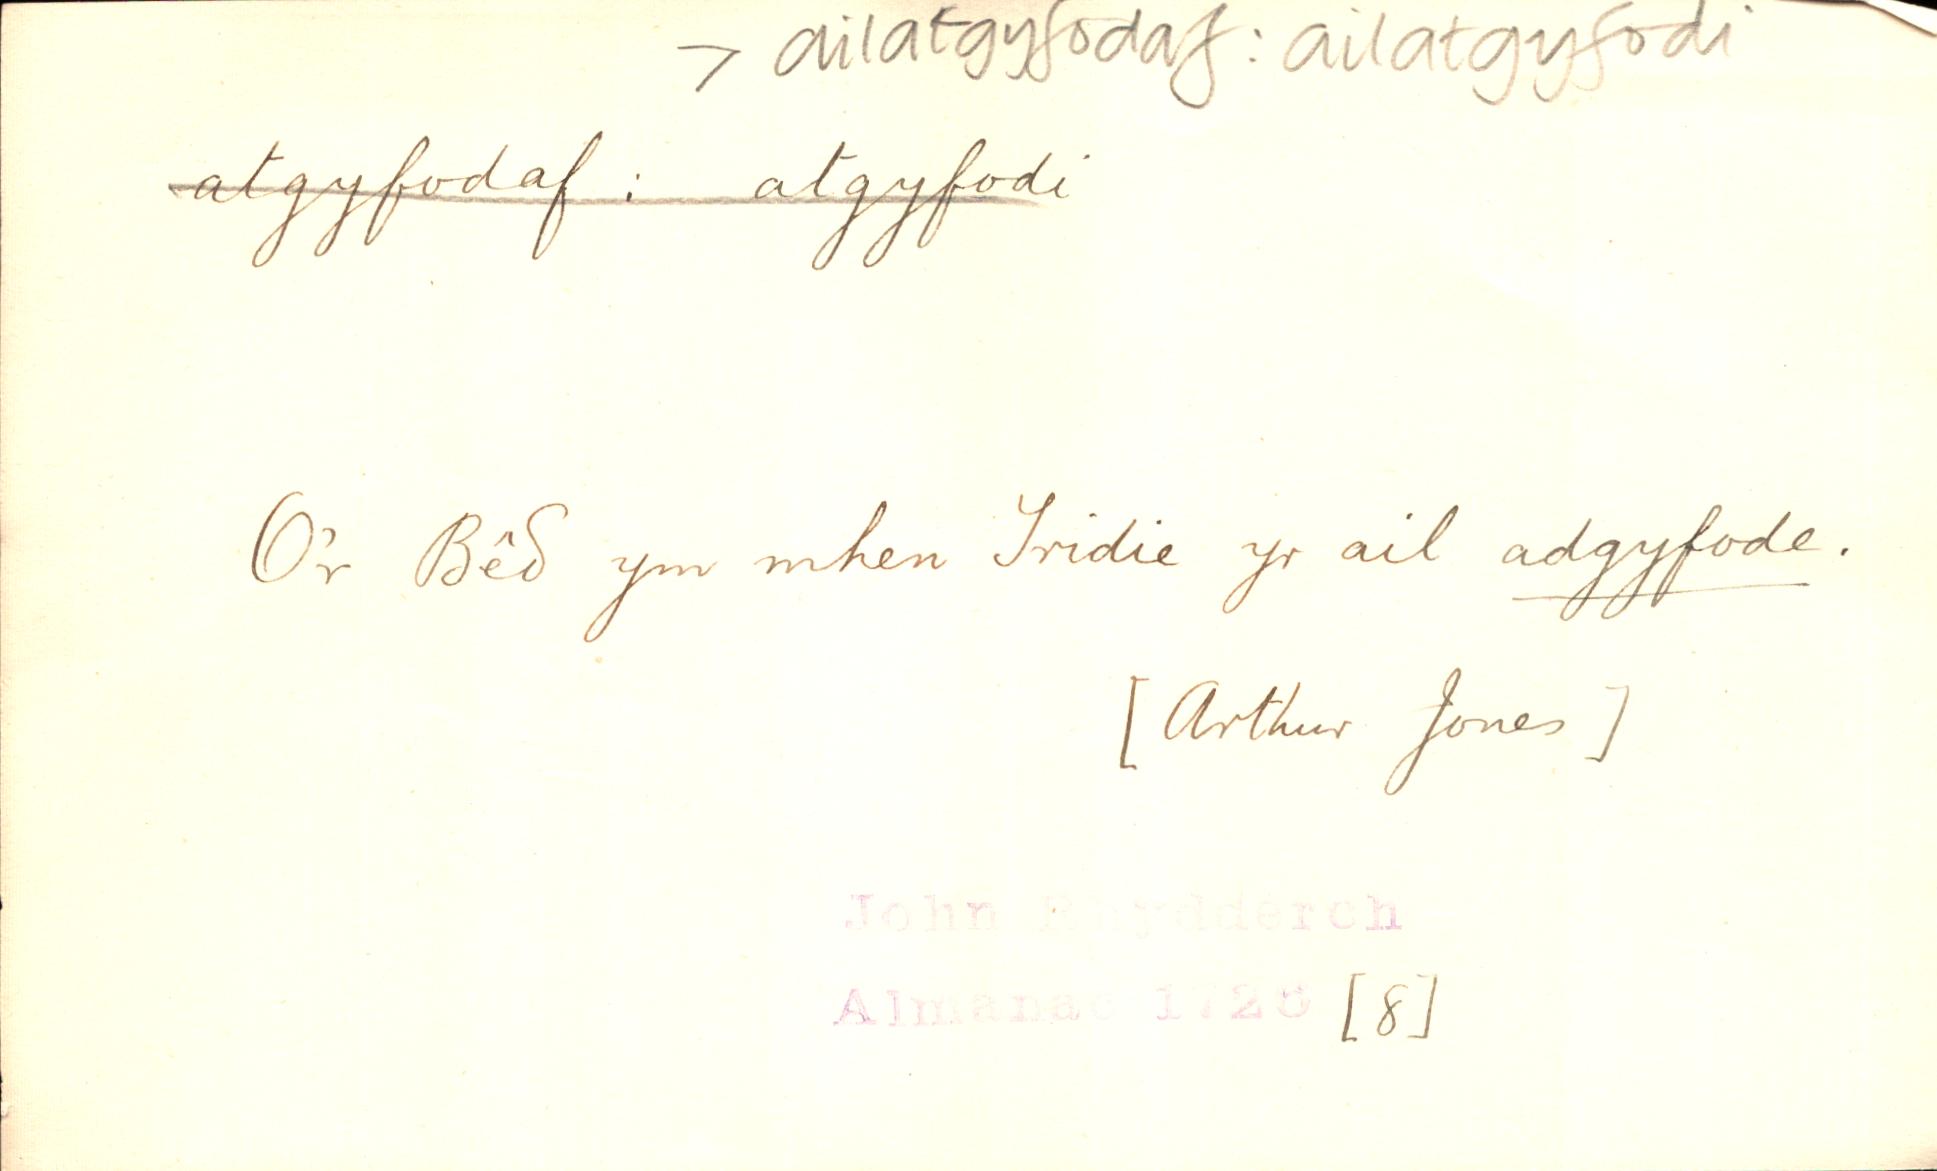 > ailatgyfodaf : ailatgyfodi
atgyfodaf : atgyfodi
O'r Bêδ ym mhen Tridie yr ail adgyfode.
[Arthur Jones]
John Rhydderch
Almanac [8]